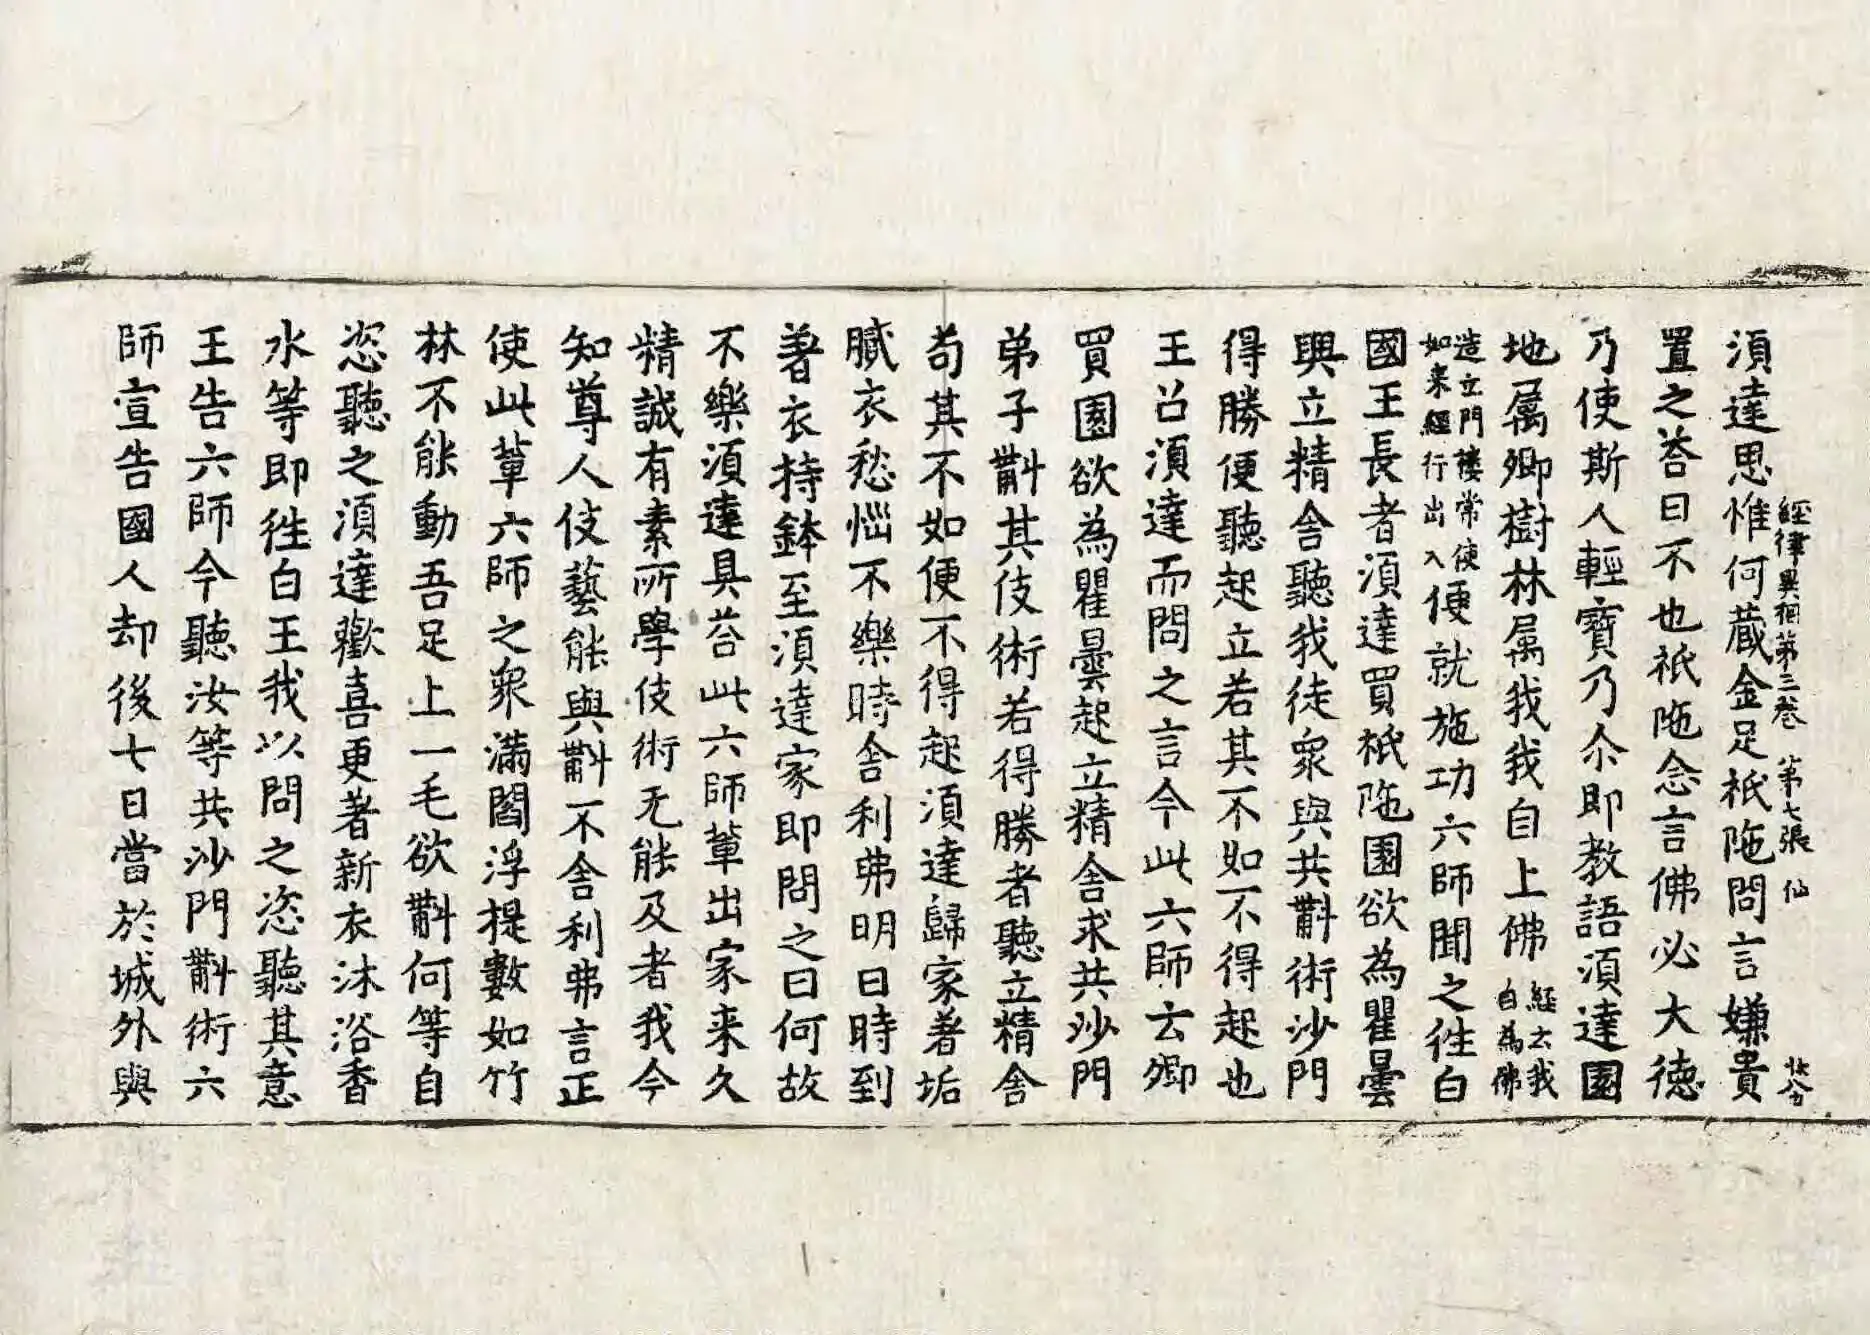 經律異相第三卷 第七張 仙
須達思惟何藏金足祇陁問言嫌貴
置之荅曰不也祇陁念言佛必大德
乃使斯人輕寶乃尒即教語須達園
地属卿樹林属我我自上佛經云我自為佛
造立門樓常使如来經行出入便就施功六師聞之徃白
國王長者須達買祇陁園欲為瞿曇
興立精舍聽我徒衆與共㪺術沙門
得勝便聽起立若其不如不得起也
王召須達而問之言今此六師云卿
買園欲為瞿曇起立精舍求共沙門
弟子㪺其伎術若得勝者聽立精舍
苟其不如便不得起須達歸家著垢
膩衣愁惱不樂時舍利弗明日時到
著衣持鉢至須達家即問之曰何故
不樂須達具荅此六師軰出家来久
精誠有素所學伎術无能及者我今
知尊人伎藝能與㪺不舍利弗言正
使此軰六師之衆滿閻浮提數如竹
林不能動吾足上一毛欲㪺何等自
恣聽之須達歡喜更著新衣沐浴香
水等即徃白王我以問之恣聽其意
王告六師今聽汝等共沙門㪺術六
師宣告國人却後七日當於城外與